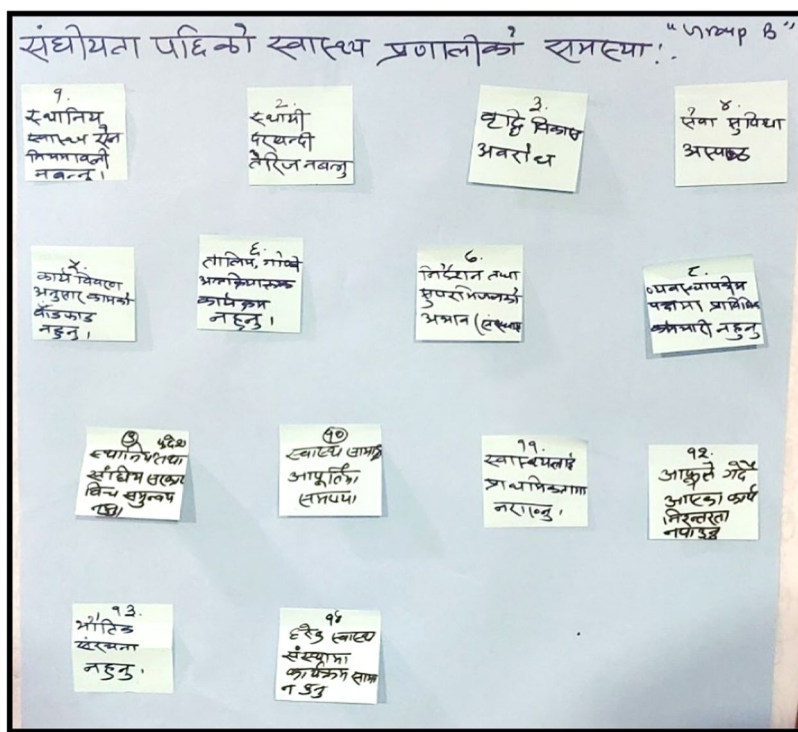 संघीयता पछिको स्वास्थ्य प्रणालीको समस्या!. "Group B"
१.
स्थानिय
स्वास्थ्य सेवा
नियमावली
नबन्नु।
2.
स्थायी
दरवन्दी
तेरिज नबन्नु
३.
वृद्दि विकास
अवरोध
४.
सेवा सुविधा
अस्पष्ट
५.
कार्य विवरण
अनुसार कामको
बाँडफाड
नहुनु।
६.
तालिम, गोष्ठी
अन्तक्रियात्मक
कार्यक्रम
नहुनु।
७.
निर्देशन तथा
सुपरभिजनको
अभाव (संस्थागत
८.
व्यवस्थापकीय
पक्षमा प्राविधिक
कर्मचारी नहुनु
९ प्रदेश
स्थानियतथा
संघीय सरकार
विच समुन्वय
१०
स्वास्थ्य सामाग्री
आपूर्तिमा
समस्या
११.
स्वास्थ्यलाई
प्राथमिकतामा
नराख्नु।
१२.
आफूले गर्दै
आएका कार्य
निरन्तरता
नपाउनु
१३.
भौतिक
संरचना
नहुनु।
१४
हरेक स्वास्थ्य
संस्थामा
कार्यक्रम
न हुनु